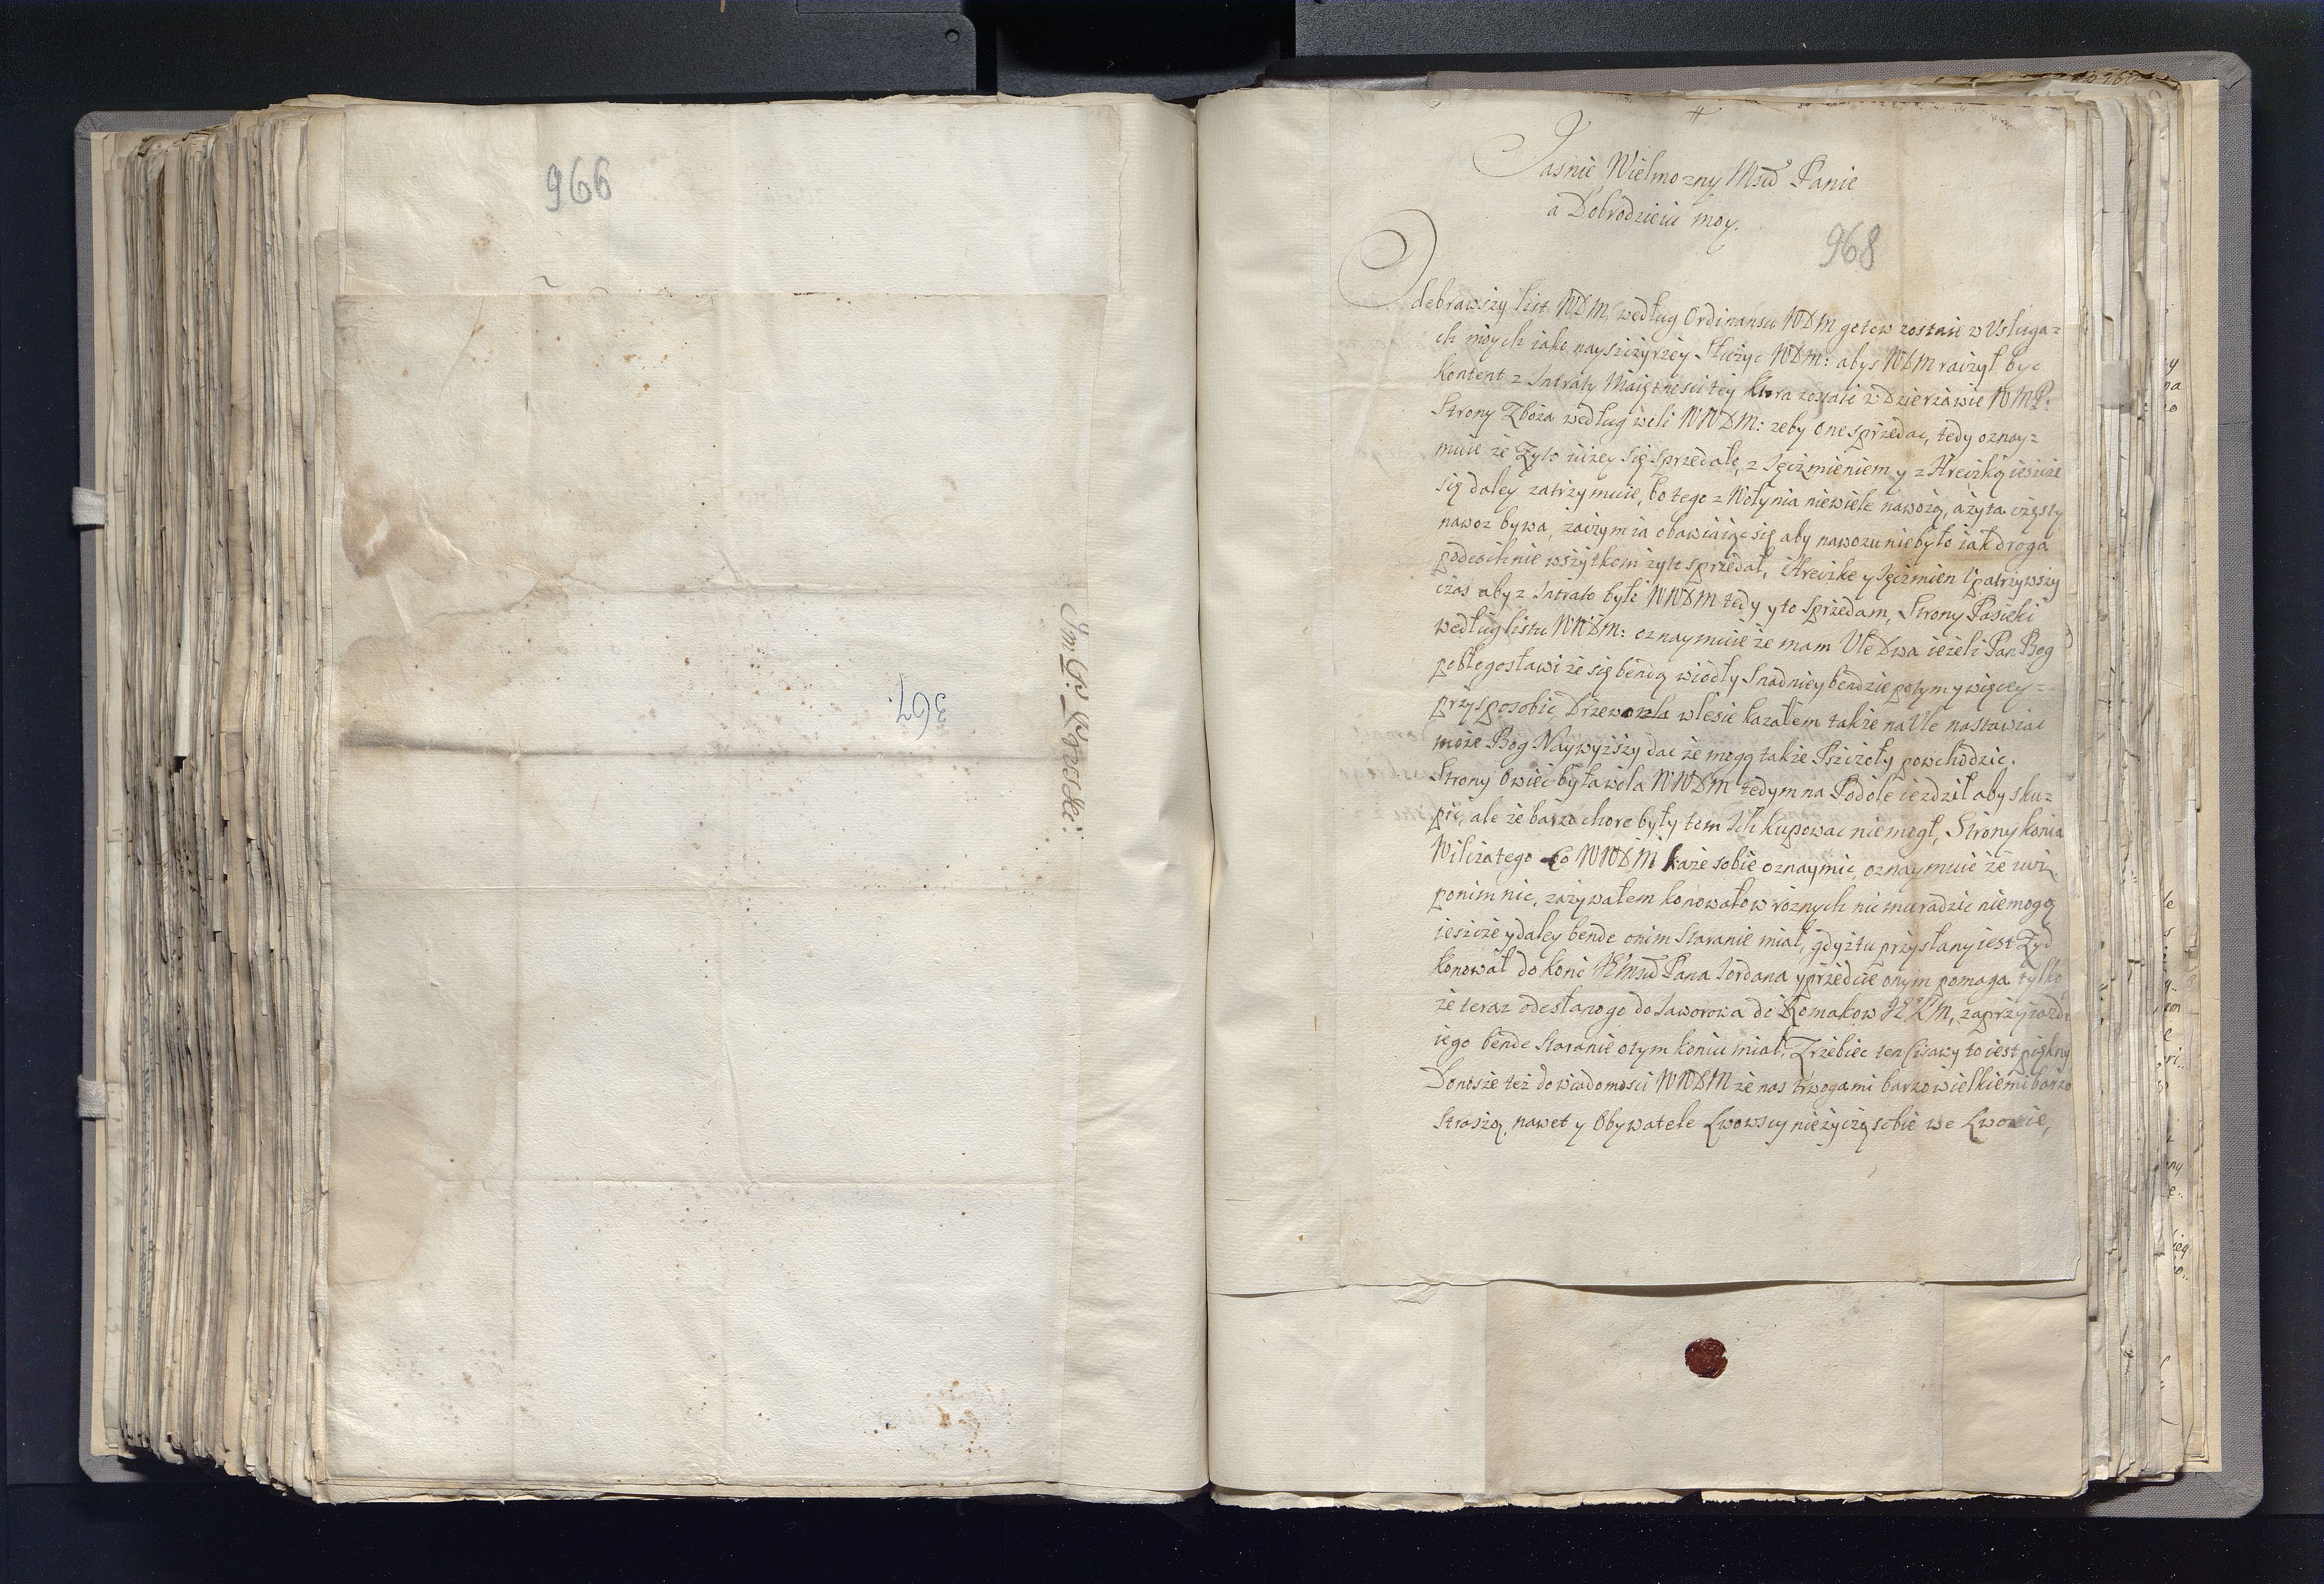 966
367.
Jasnie Wielmozny Mscɩ Panie
a Dobrodzieiu moy.
968
Odebrawszy list WDM, według Ordinansu WDM gotow zostaie w Usługa=
ch moych iako nayszczyrzey Służyc WDM: abys WDM raczył byc
Kontent z Intraty Maiętnosci tey ktora zostaie w Dzierzawie WMP:
Strony Zboza według woli WWDM: zeby one sprzedac, tedy oznay=
muie ze Zyto iuzey się sprzedało, z Ięczmieniem y z Hreczką ieszcze
się daley zatrzymuie, bo tego z Wołynia niewiele nawożą, a żyta częsty
nawoz bywa, zaczym ia obawiaiąc się aby nawozu niebyło iak droga
podeschnie wszytkom zyto sprzedał, Hreczke y Ięczmien Upatrzywszy
czas aby z Intrato było WWDM tedy y to Sprzedam, Strony Pasieki
według listu WWDM: oznaymuie że mam Ule Dwa ieżeli Pan Bog
pobłogosławi że się bendą wiodły Snadniey bendzie potym y więcey=
przysposobic, Drzewo w lesie kazałem takze na Ule nastawiac
może Bog Naywyższy dac że mogą takze Pszczoły powchodzic.
Strony Owiec była wola WWDM tedym na Podole iezdził aby sku=
pic, ale że barzo chore były tom Ich kupowac niemogł, Strony konia
Wilczatego Co WWDM każe sobie oznaymic, oznaymuie że iuż
ponim nic, zazywałem konowałow roznych nic mu radzic niemogą
ieszcze y daley bende onim Staranie miał, gdyż tu przysłany iest Zyd
konował do koni Pana Iordana y przedcie onym pomaga tylko
że teraz odesłano go do Iaworowa do, za przyiazdem
iego bende Staranie otym koniu miał. Zrzebiec ten Cisawy to iest piękny
Donosze też do wiadomosci WWDM że nas trwogami barzo wielkiemi barzo
Straszą, nawet y Obywatele Lwowscy nieżyczą sobie we Lwowie,